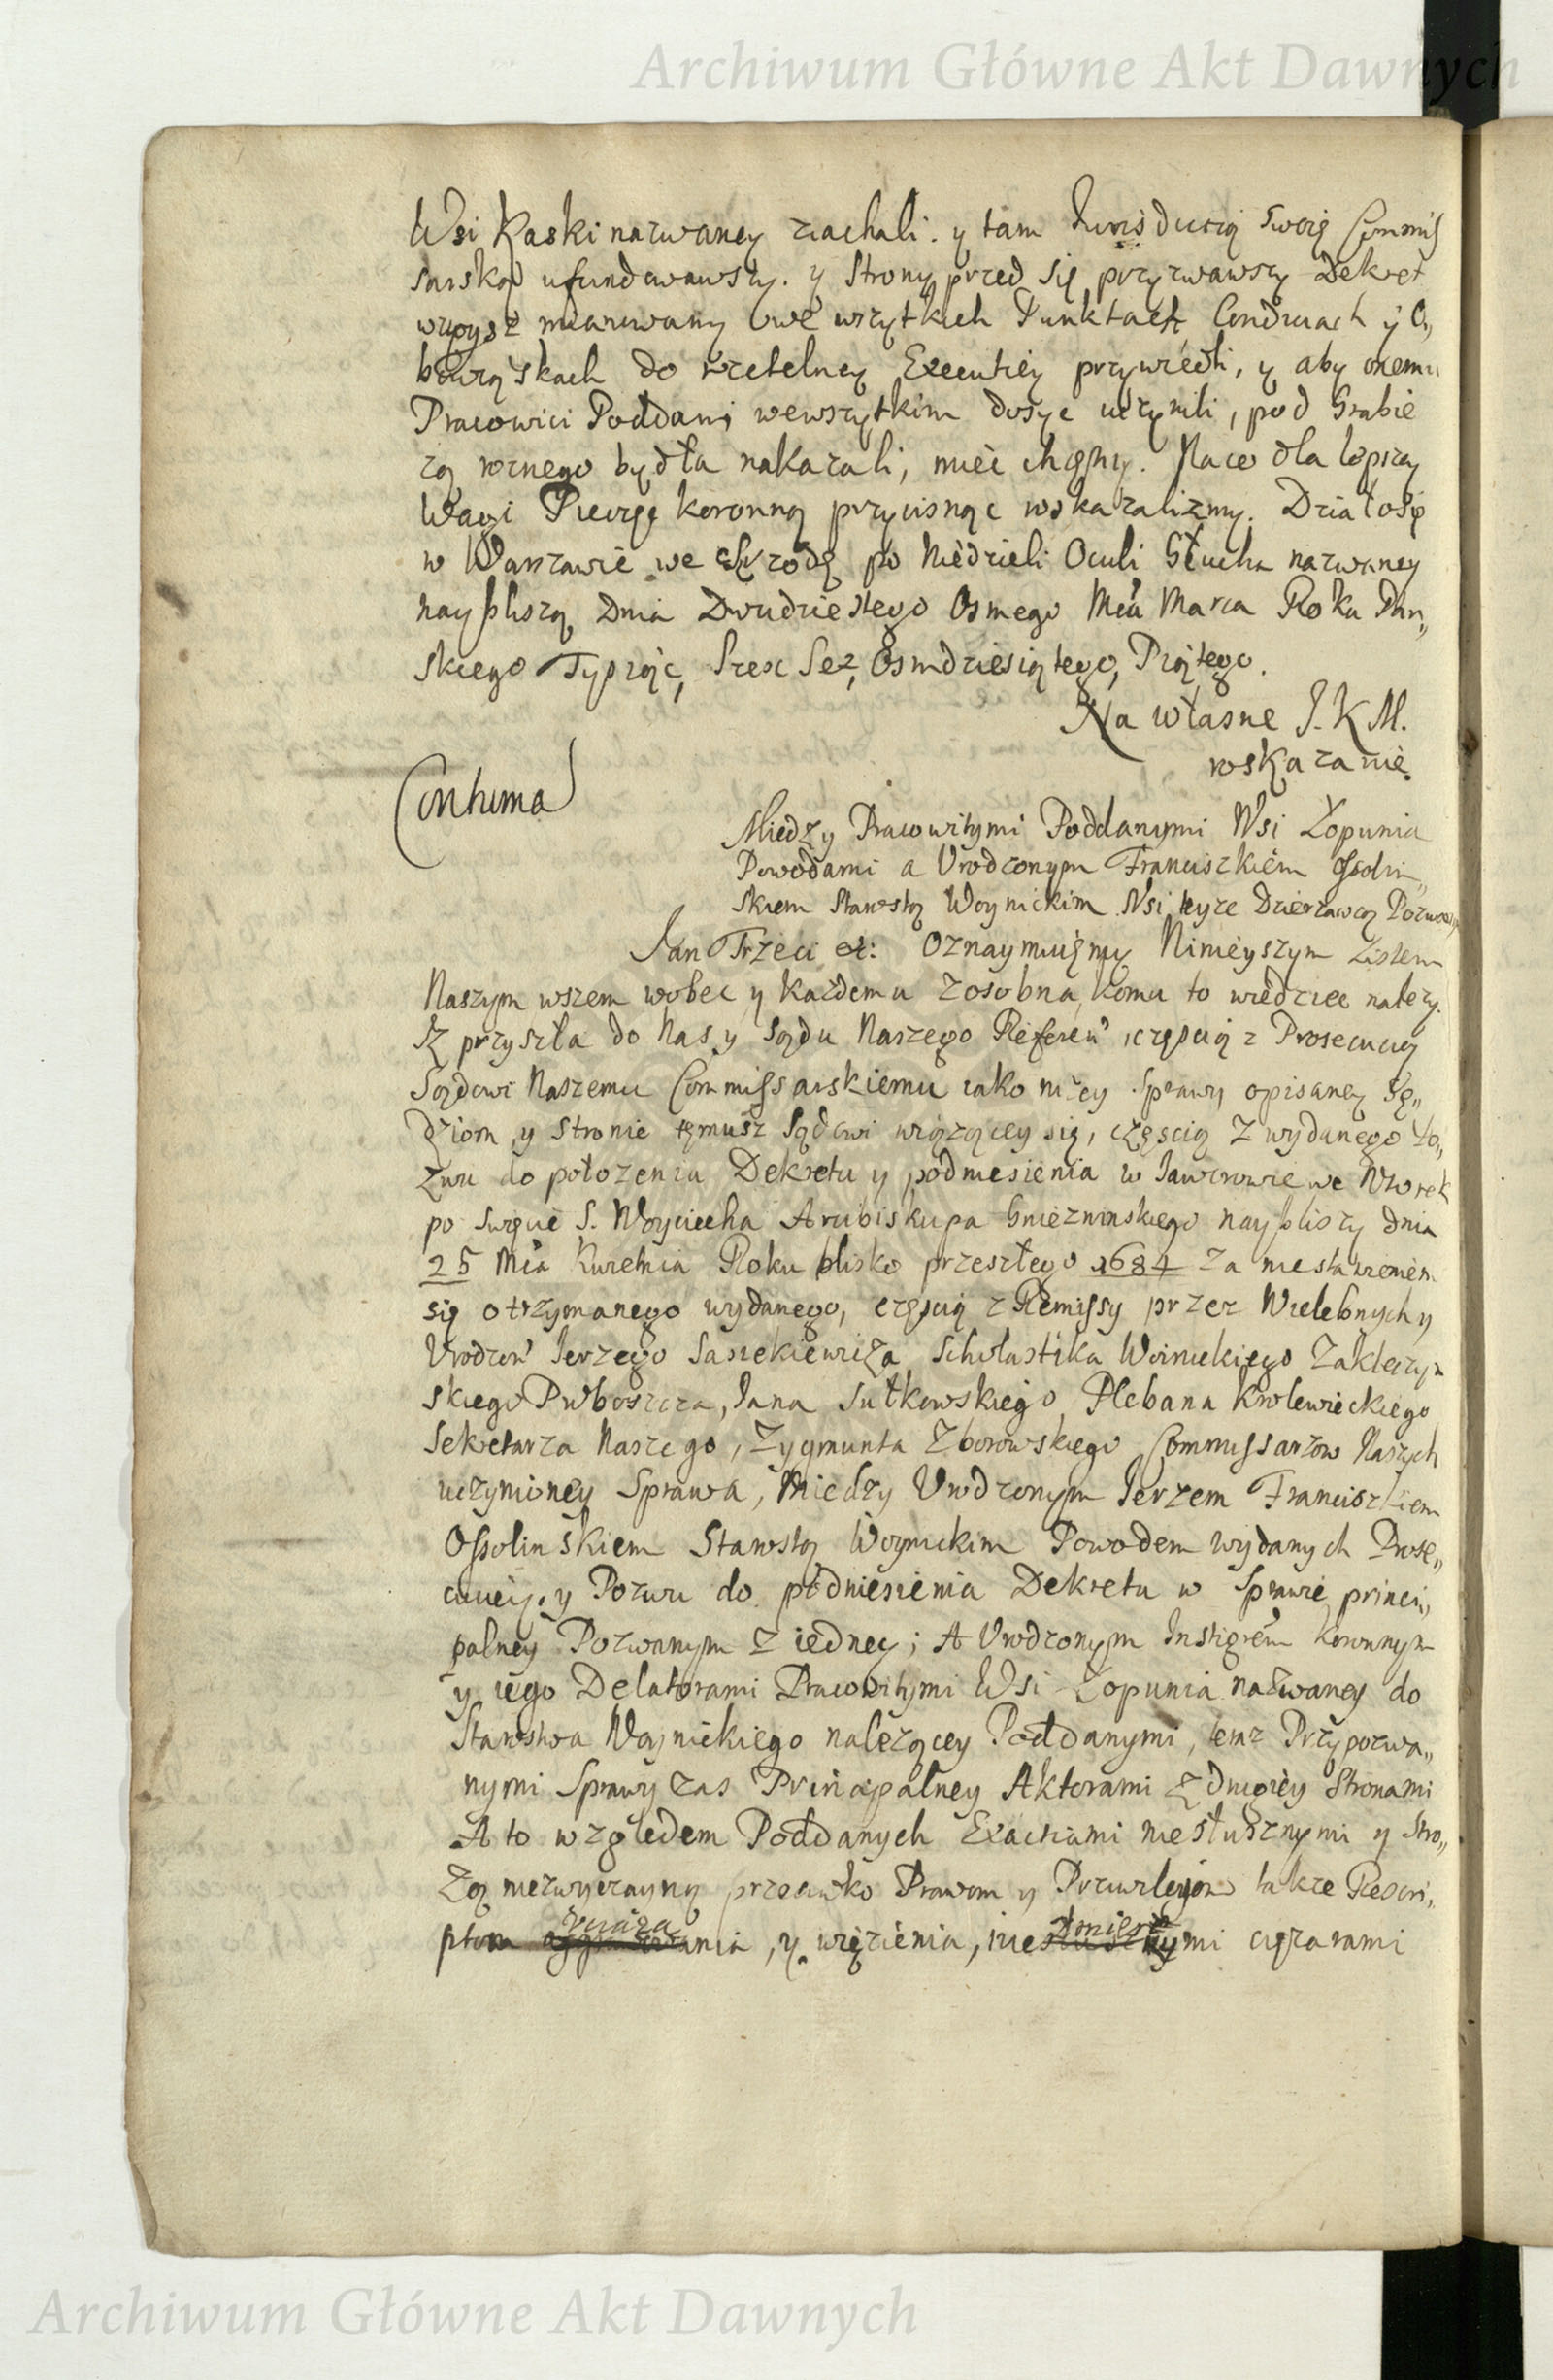 Archiwum Główne Akt Dawnych
Wsi Kaski nazwaney ziachali. y tam Jurisdictią swoię Commis
sarską ufundowawszy. y Strony przed się przyzwawszy Dekret
wzwysz mianowany we wszytkich Punktach Conditiach y O„
bowiąskach do rzetelney Executiey przywiedli, y aby onemu
Pracowici Poddani wewszytkim dosyc uczynili, pod Grabie
żą rocznego bydła nakazali, miec chcemy. Naco dla lepszey
Wagi Pieczęc koronną przycisnąc wskazalizmy. Działosię
w Warszawie we Szrodę po Niedzieli Oculi Głucha nazwaney
nayblizszą Dnia Dwudziestego Osmego Mca Marca Roku Pan„
skiego Tysiąc, Szesc Set, Osmdziesiątego, Piątego.
Na własne J. K M.
wskazanie.
Contuma
Miedzy Pracowitymi Poddanymi Wsi Łopunia
Powodami a Urodzonym Franciszkiem Ossolin„
skiem Starostą Woynickim Wsi teyze Dzierzawcą Pozwa
Jan Trzeci etc: Oznaymuiemy Ninieyszym Listem
Naszym wszem wobec y kazdemu zosobna, komu to wiedziec nalezy.
Iz przyszła do Nas y Sądu Naszego Referen częscią z Prosecuciey
Sądowi Naszemu Commissarskiemu iako nizey Sprawy opisaney Sę„
dziom y Stronie temusz Sądowi wiązącey się, częscią z wydanego Po„
zwu do położenia Dekretu y podniesienia w Jaworowie we Wtorek
po Swięcie S. Woyciecha Arcibiskupa Gnieznienskiego nayblizszy dnia
25 Mca Kwietnia Roku blisko przeszłego 1684 za niestawieniem
się otrzymanego wydanego, częscią z Remissy przez Wielebnych y
Urodzon Jerzego Sasiekiewicza Scholastika Woinickiego Zakliczyn
skiego Proboszcza, Jana Sutkowskiego, Plebana Krolewieckiego
Sekretarza Naszego, Zygmunta Zborowskiego Commissarzow Naszych
uczynioney Sprawa, Miedzy Urodzonym Jerzem Franciszkiem
Ossolinskiem Starostą Woynickim Powodem wydanych Prose„
cuciey, y Pozwu do podniesienia Dekretu w Sprawie princi„
palney Pozwanym z iedney; A Urodzonym Instigrem koronnym
y iego Delatorami Pracowitymi Wsi Łopunia nazwaney do
Starostwa Woynickiego nalezącey Poddanymi, teraz Przypozwa„
nymi Sprawy zas Principalney Aktorami z drugiey Stronami
A to względem Poddanych Exactiami niesłusznymi y Stro„
żą niezwyczayną przeciwko Prawom y Przywileiom także Rescri„
ptom , y więzienia, nieznosnymi ciężarami
Archiwum Główne Akt Dawnych